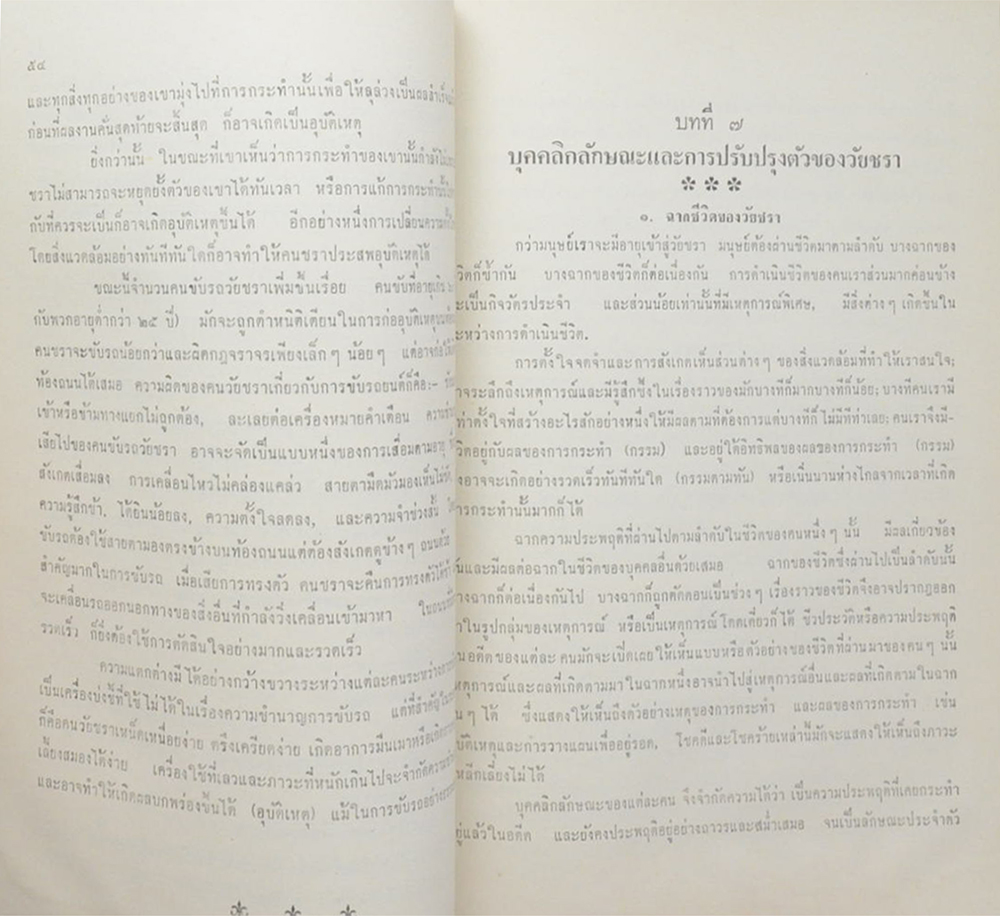 ๕๔
และทุกสิ่งทุกอย่างของเขามุ่งไปที่การกระทำนั้นเพื่อให้ลุล่วงเป็นผลสำเร็จ
ก่อนที่ผลงานคั่นสุดท้ายจะสิ้นสุด ก็อาจเกิดเป็นอุบัติเหตุ
ยิ่งกว่านั้น ในขณะที่เขาเห็นว่าการกระทำของเขานั้นกำลัง
ชราไม่สามารถจะหยุดยั้งตัวของเขาได้ทันเวลา หรือการแก้การกระทำนั้น
กับที่ควรจะเป็นก็อาจเกิดอุบัติเหตุขึ้นได้ อีกอย่างหนึ่งการเปลี่ยนความ
โดยสิ่งแวดล้อมอย่างทันทีทันใดก็อาจทำให้คนชราประสพอุบัติเหตุได้
ขณะนี้จำนวนคนขับรถวัยชราเพิ่มขึ้นเรื่อย คนขับที่อายุเกิน
กับพวกอายุต่ำกว่า ๒๕ ปี) มักจะถูกตำหนิติเตียนในการก่ออุบัติเหตุ
คนชราจะขับรถน้อยกว่าและผิดกฎจราจรเพียงเล็กๆ น้อยๆ แต่อาจ
ท้องถนนได้เสมอ ความผิดของคนวัยชราเกี่ยวกับการขับรถยนต์ก็คือ:—
เข้าหรือข้ามทางแยกไม่ถูกต้อง, ละเลยต่อเครื่องหมายคำเตือน
เสียไปของคนขับรถวัยชรา อาจจะจัดเป็นแบบหนึ่งของการเสื่อมตามอายุ
สังเกตเสื่อมลง การเคลื่อนไหวไม่คล่องแคล่ว สายตามืดมัวมองเห็นไม่
ความรู้สึกช้า, ได้ยินน้อยลง, ความตั้งใจลดลง, และความจำช่วงสั้น
ขับรถต้องใช้สายตามองตรงข้างบนท้องถนนแต่ต้องสังเกตดูข้างๆ ถนนด้วย
สำคัญมากในการขับรถ เมื่อเสียการทรงตัว คนชราจะคืนการทรงตัวได้
จะเคลื่อนรถออกนอกทางของสิ่งอื่นที่กำลังวิ่งเคลื่อนเข้ามาหา
รวดเร็ว ก็ยิ่งต้องใช้การตัดสินใจอย่างมากและรวดเร็ว
ความแตกต่างมีได้อย่างกว้างขวางระหว่างแต่ละคนระหว่าง
เป็นเครื่องบ่งชี้ที่ใช้ไม่ได้ในเรื่องความชำนาญการขับรถ แต่ที่สำคัญ
ก็คือคนวัยชราเหน็ดเหนื่อยง่าย ตรึงเครียดง่าย เกิดอาการมึนเมาหรือ
เลี้ยงสมองได้ง่าย เครื่องใช้ที่เลวและภาวะที่หนักเกินไปจะจำกัดความ
และอาจทำให้เกิดผลบกพร่องขึ้นได้ (อุบัติเหตุ) แม้ในการขับรถอย่าง
บทที่ ๗
บุคคลิกลักษณะและการปรับปรุงตัวของวัยชรา
✽ ✽ ✽
๑. ฉากชีวิตของวัยชรา
กว่ามนุษย์เราจะมีอายุเข้าสู่วัยชรา มนุษย์ต้องผ่านชีวิตมาตามลำดับ บางฉากของ
วิตก็ซ้ำกัน บางฉากของชีวิตก็ต่อเนื่องกัน การดำเนินชีวิตของคนเราส่วนมากค่อนข้าง
ะเป็นกิจวัตรประจำ และส่วนน้อยเท่านั้นที่มีเหตุการณ์พิเศษ, มีสิ่งต่างๆ เกิดขึ้นใน
ะหว่างการดำเนินชีวิต.
การตั้งใจจดจำและการสังเกตเห็นส่วนต่างๆ ของสิ่งแวดล้อมที่ทำให้เราสนใจ;
าจะระลึกถึงเหตุการณ์และมีรู้สึกซึ้งในเรื่องราวของมันบางทีก็มากบางทีก็น้อย; บางทีคนเรามี
ท่าตั้งใจที่สร้างอะไรสักอย่างหนึ่งให้มีผลตามที่ต้องการแต่บางทีก็ไม่มีทีท่าเลย; คนเราจึงมี-
วิตอยู่กับผลของการกระทำ (กรรม) และอยู่ใต้อิทธิพลของผลของการกระทำ (กรรม)
งอาจจะเกิดอย่างรวดเร็วทันทีทันใด (กรรมตามทัน) หรือเนิ่นนานห่างไกลจากเวลาที่เกิด
ารกระทำนั้นมากก็ได้
ฉากความประพฤติที่ผ่านไปตามลำดับในชีวิตของคนหนึ่งๆ นั้น มีผลเกี่ยวข้อง
ันและมีผลต่อฉากในชีวิตของบุคคลอื่นด้วยเสมอ ฉากของชีวิตซึ่งผ่านไปเป็นลำดับนั้น
างฉากก็ต่อเนื่องกันไป บางฉากก็ถูกตัดตอนเป็นช่วงๆ เรื่องราวของชีวิตจึงอาจปรากฏออก
าในรูปกลุ่มของเหตุการณ์ หรือเป็นเหตุการณ์โดดเดี่ยวก็ได้ ชีวประวัติหรือความประพฤติ
นอดีตของแต่ละคนมักจะเปิดเผยให้เห็นแบบหรือตัวอย่างของชีวิตที่ผ่านมาของคนๆ นั้น
หตุการณ์และผลที่เกิดตามมาในฉากหนึ่งอาจนำไปสู่เหตุการณ์อื่นและผลที่เกิดตามในฉาก
นๆ ได้ ซึ่งแสดงให้เห็นถึงตัวอย่างเหตุของการกระทำ และผลของการกระทำ เช่น
บัติเหตุและการวางแผนเพื่ออยู่รอด, โชคดีและโชคร้ายเหล่านี้มักจะแสดงให้เห็นถึงภาวะ
หลีกเลี่ยงไม่ได้
บุคคลิกลักษณะของแต่ละคน จึงจำกัดความได้ว่า เป็นความประพฤติที่เคยกระทำ
ยู่แล้วในอดีต และยังคงประพฤติอยู่อย่างถาวรและสม่ำเสมอ จนเป็นลักษณะประจำตัว